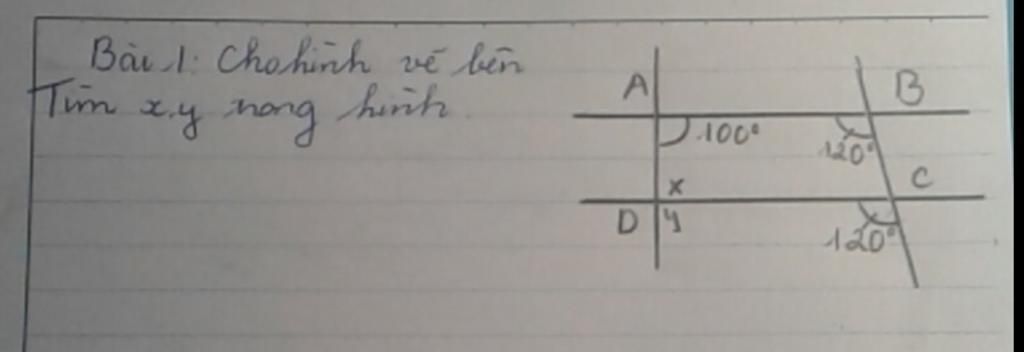 Bài 1: Cho hình vẽ bên
Tìm x,y trong hình.
A
B
100°
120°
x
C
D
y
120°